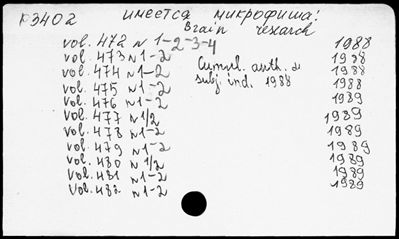 р3402 имеется микрофиша!
Brain research
vol. 472 N 1-2-3-4 1988
vol. 473 N 1-2 1988
vol. 474 N 1-2 1988
vol. 475 N 1-2 1988
vol. 476 N 1-2 1989
vol. 477 N 1/2 1989
vol. 478 N 1-2 1989
vol. 479 N 1-2 1989
vol. 480 N 1/2 1989
vol. 481 N 1-2 1989
vol. 482 N 1-2 1989
Cumul. auth. &
subj. ind. 1988